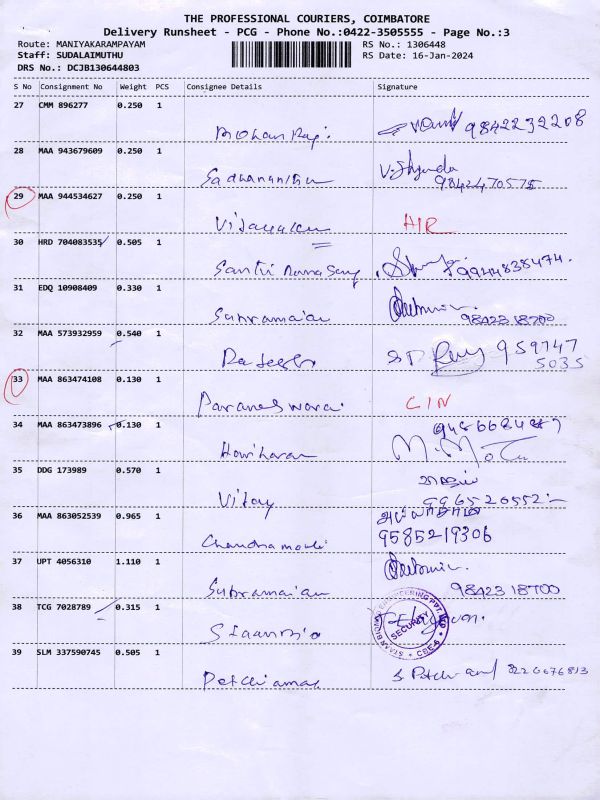 THE PROFESSIONAL COURIERS, COIMBATORE
Delivery Runsheet - PCG - Phone No.:0422-3505555 - Page No.:3
Route: MANIYAKARAMPAYAM RS No.: 1306448
Staff: SUDALAIMUTHU RS Date: 16-Jan-2024
DRS No.: DCJB130644803
S No Consignment No Weight PCS Consignee Details Signature
27 CMM 896277 0.250 1
Mohan Raj. 9842232208
28 MAA 943679609 0.250 1
9842470575
29 MAA 944534627 0.250 1
AIR
30 HRD 704083535 0.505 1
9944838474.
31 EDQ 10908409 0.330 1
Subramaian 98423 18700
32 MAA 573932959 0.540 1
Rajesh 959747
5035
33 MAA 863474108 0.130 1
Parameswarai CIN
34 MAA 863473896 0.130 1
Hariharan
35 DDG 173989 0.570 1
Vijay
36 MAA 863052539 0.965 1
9585219306
Chandramouli
37 UPT 4056310 1.110 1
Subramaian 98423 18700
38 TCG 7028789 0.315 1
SECURITY
39 SLM 337590745 0.505 1